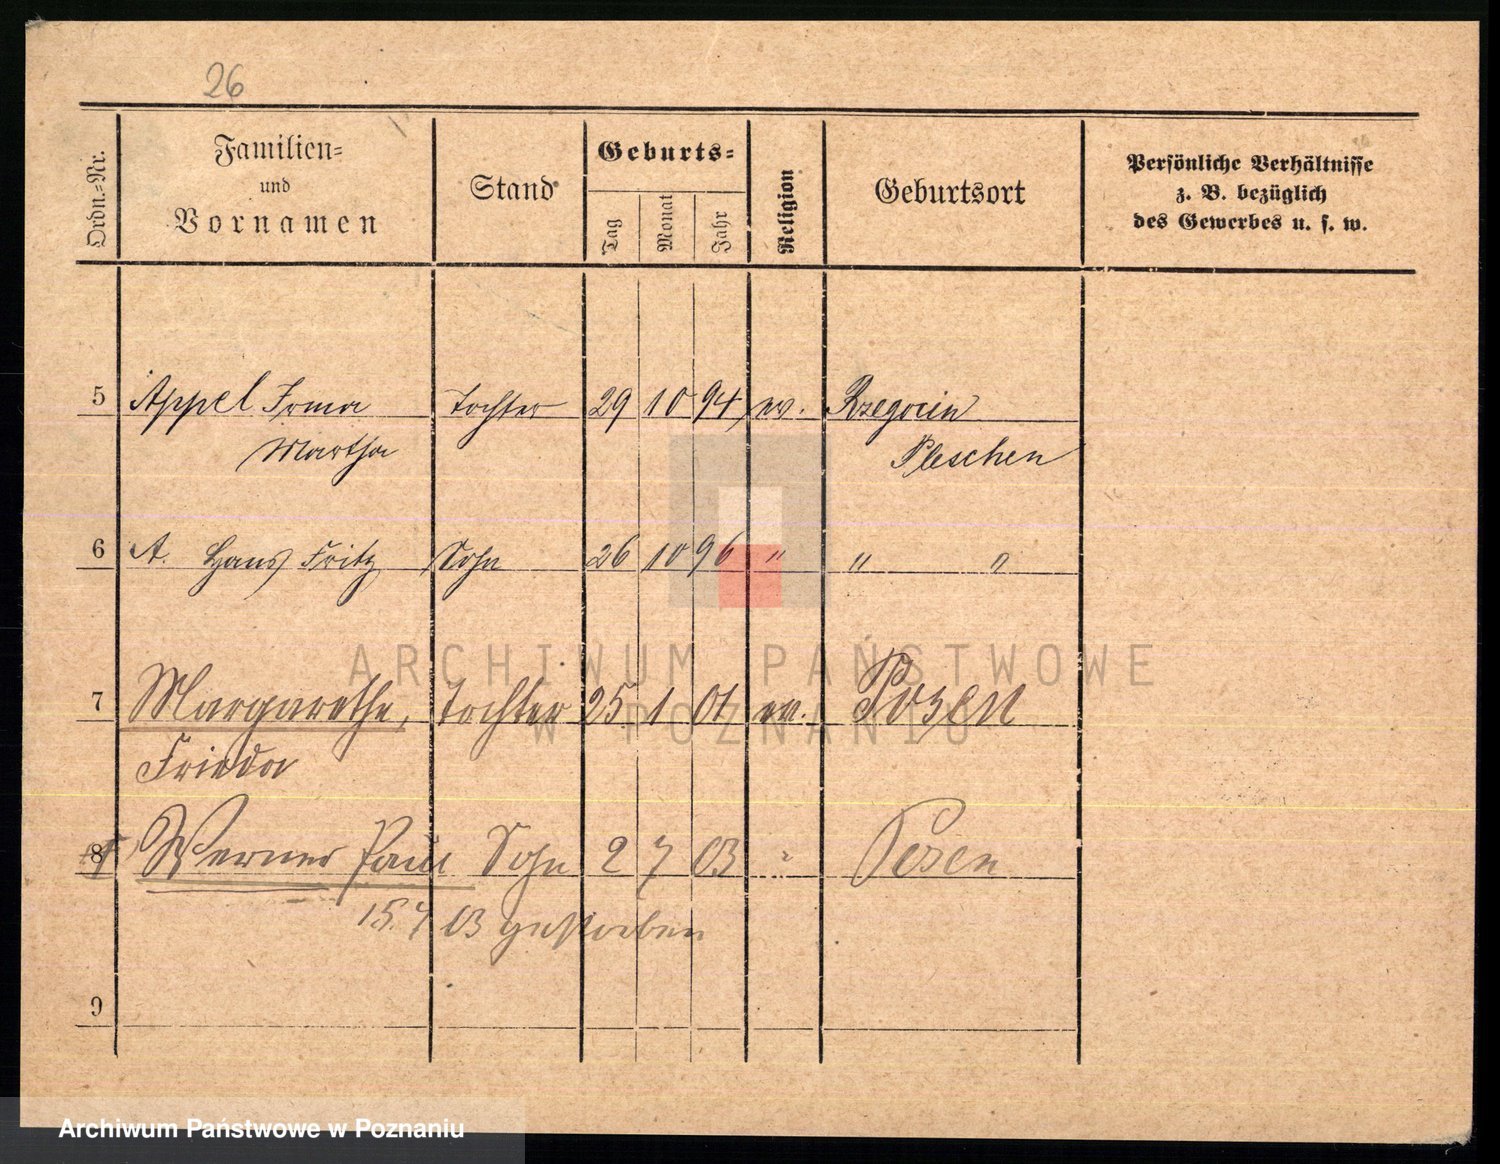 26
Ordn.-Nr.
Familien-
und
Vornamen
Stand
Geburts-
Tag
Monat
Jahr
Religion
Geburtsort
Persönliche Verhältnisse
z. B. bezüglich
des Gewerbes u. s. w.
5 Appel Irma Tochter 29 10 94 ev. Rzegocin
Martha Pleschen
6 A. Hans Fritz Sohn 26 10 96 " " "
7 Margarethe, Tochter 25 1 01 ev. Posen
Frieda
8 Werner Paul Sohn 2 7 03 " Posen
15.7 03 gestorben
9
ARCHIWUM PAŃSTWOWE
W POZNANIU
Archiwum Państwowe w Poznaniu